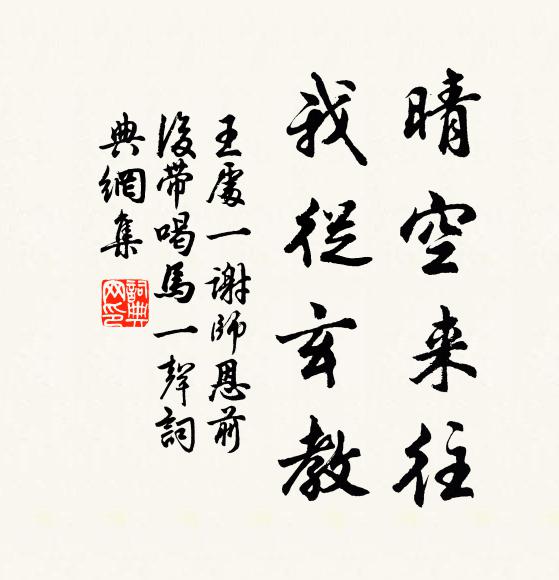 晴空来往
我從玄教
王處一謝師恩前
後帶喝馬一聲詞
典網集
詞典网印